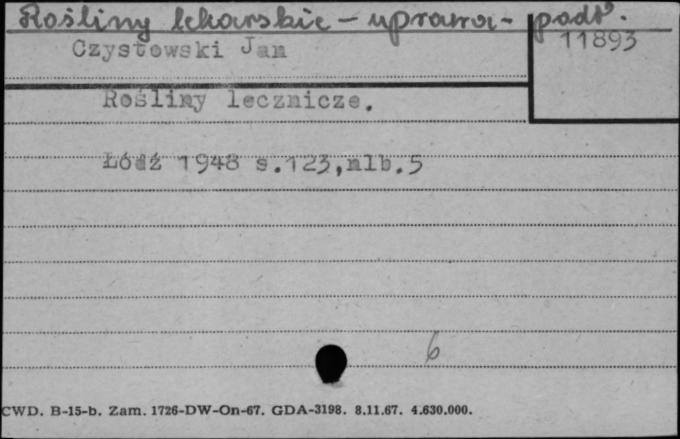 Rośliny lekarskie - uprawa - podr.
Czystowski Jan
11893
Rośliny lecznicze.
Łódź 1948 s.123,nlb.5
6
CWD. B-15-b. Zam. 1726-DW-On-67. GDA-3198. 8.11.67. 4.630.000.